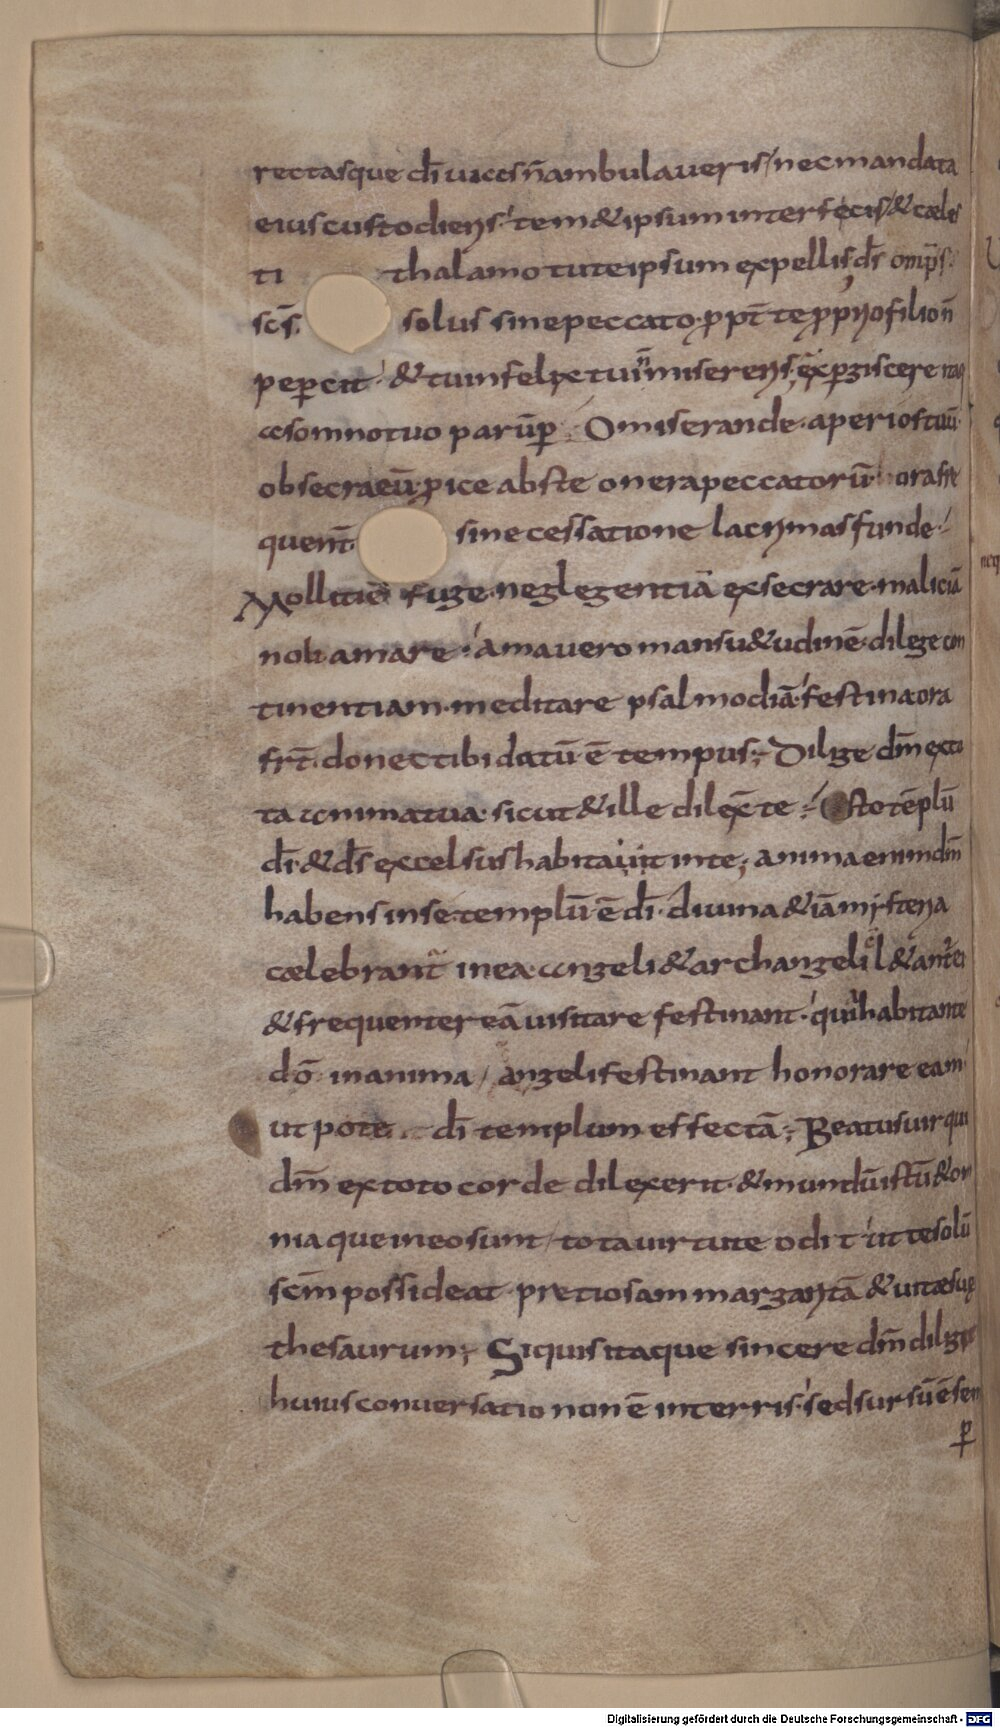 rectasque dī uias n̄ ambulaueris / nec mandata
eius custodiens· tem& ipsum interfecis / & cæles
ti thalamo tute ipsum expellis; d̄s omp̄s·
sc̄s· solus sine peccato· ꝓpt̄ te ꝓprio filio n̄
peꝑcit· & tu infelix tui n̄ misereris; exꝑgiscere itaq
a somno tuo parūꝑ· O miserande· aperi os tuū·
obsecra eū; ꝓice abs te onera peccatorū· ora fre
quent̄· sine cessatione lacrimas funde·
Mollitiē fuge· neglegentiā exsecrare· maliciā
noli amare· ama uero mansu&udinē· dilege con
tinentiam· meditare psalmodiā· festina ora
fr̄t· donec tibi datū ē tempus; Dilige dm̄ ex to
ta anima tua· sicut & ille dilex̄ te; Esto tēplū
dī· & d̄s excelsus habitauit in te; anima enim dm̄
habens in se· templū ē dī· diuina & iā mysteria
cælebrant̄ in ea· angeli & archangeli
& frequenter eā uisitare festinant· qui habitante
dō in anima / angeli festinant honorare eam·
ut pote dī templum effectā; Beatus uir qui
dm̄ ex toto corde dilexerit· & mundū istū & om
nia que in eo sunt / tota uirtute odit ut te solū
scm̄ possideat pretiosam margaritā & uitæ suę
thesaurum; Si quis itaque sincere dm̄ diliget
huius conuersatio non ē in terris· sed sursū ē sem
ꝑ
Digitalisierung gefördert durch die Deutsche Forschungsgemeinschaft - DFG